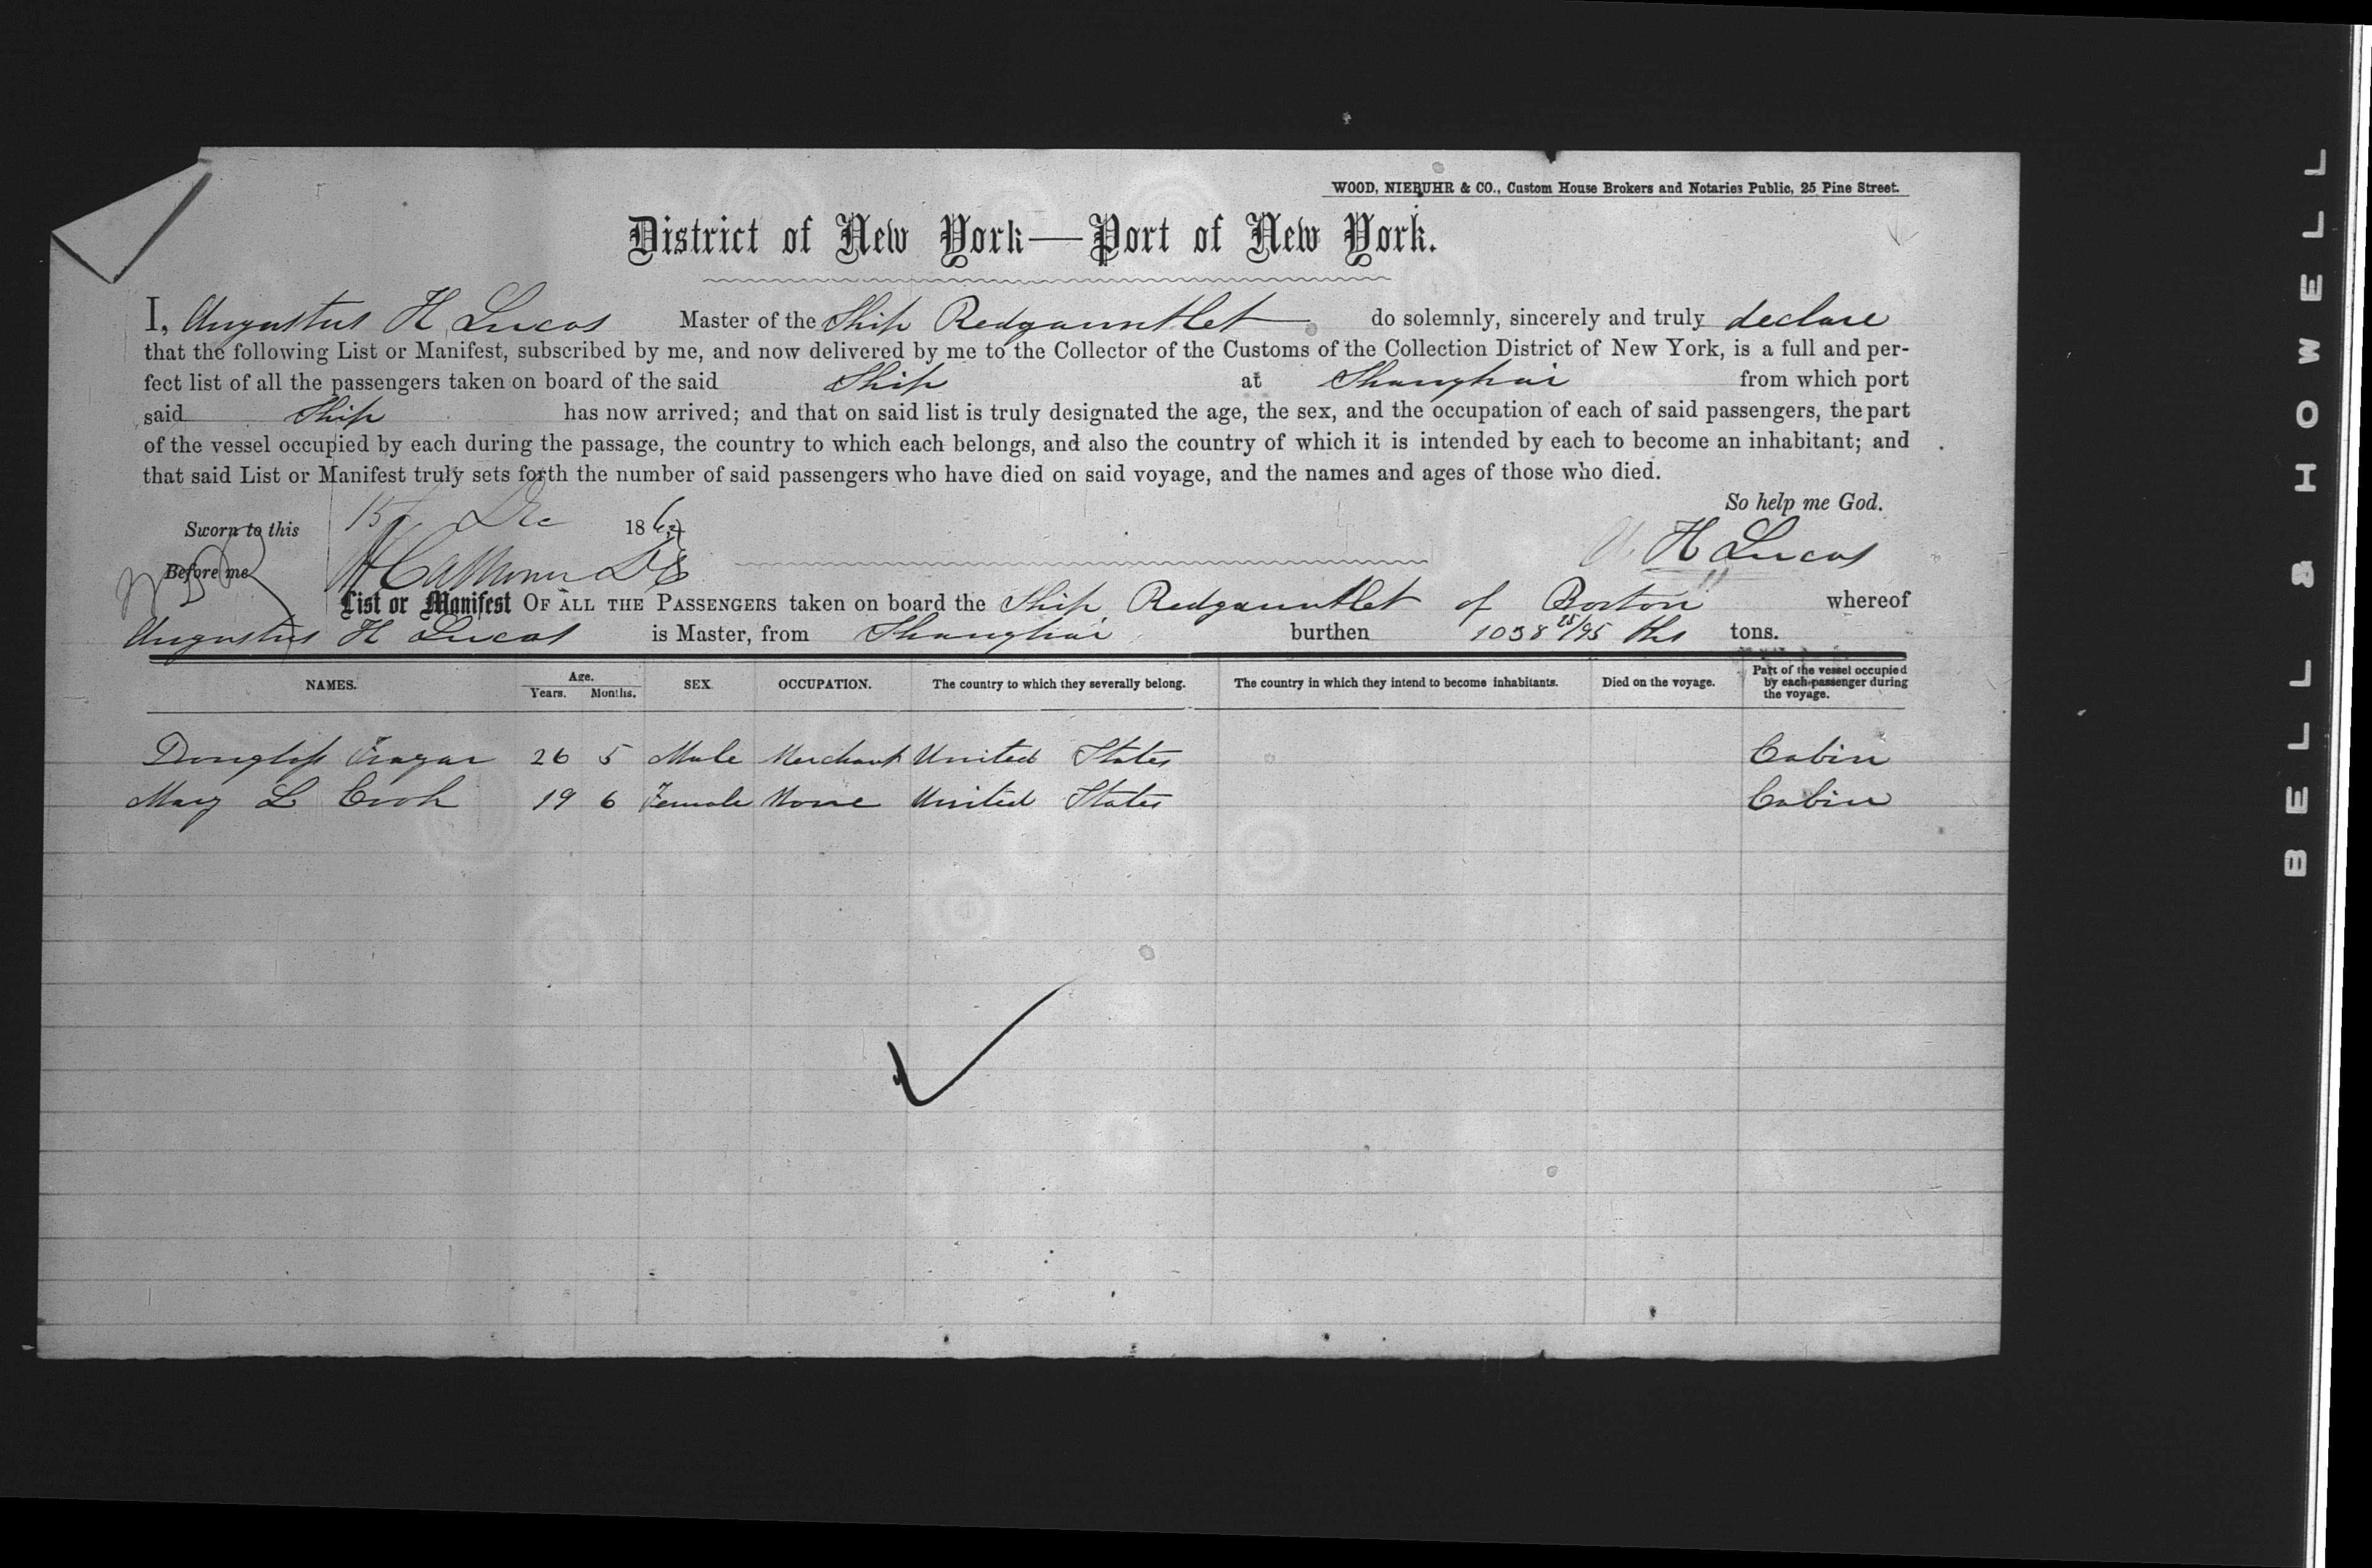 WOOD, NIEBUHR & CO., Custom House Brokers and Notaries Public, 25 Pine Street.
District of New York—Port of New York.
I, Augustus H Lucas Master of the Ship Redgauntlet do solemnly, sincerely and truly declare
that the following List or Manifest, subscribed by me, and now delivered by me to the Collector of the Customs of the Collection District of New York, is a full and per-
fect list of all the passengers taken on board of the said Ship at Shanghai from which port
said Ship has now arrived; and that on said list is truly designated the age, the sex, and the occupation of each of said passengers, the part
of the vessel occupied by each during the passage, the country to which each belongs, and also the country of which it is intended by each to become an inhabitant; and
that said List or Manifest truly sets forth the number of said passengers who have died on said voyage, and the names and ages of those who died.
So help me God.
Sworn to this 15 Dec 186
Before me
A H Lucas
List or Manifest OF ALL THE PASSENGERS taken on board the Ship Redgauntlet of Boston whereof
Augustus H Lucas is Master, from Shanghai burthen 1038 /95 ths tons.
NAMES. Age. Years. Months. SEX. OCCUPATION. The country to which they severally belong. The country in which they intend to become inhabitants. Died on the voyage. Part of the vessel occupied by each passenger during the voyage.
26 5 Male Merchant United States Cabin
Mary L Cook 19 6 Female None United States Cabin
BELL & HOWELL